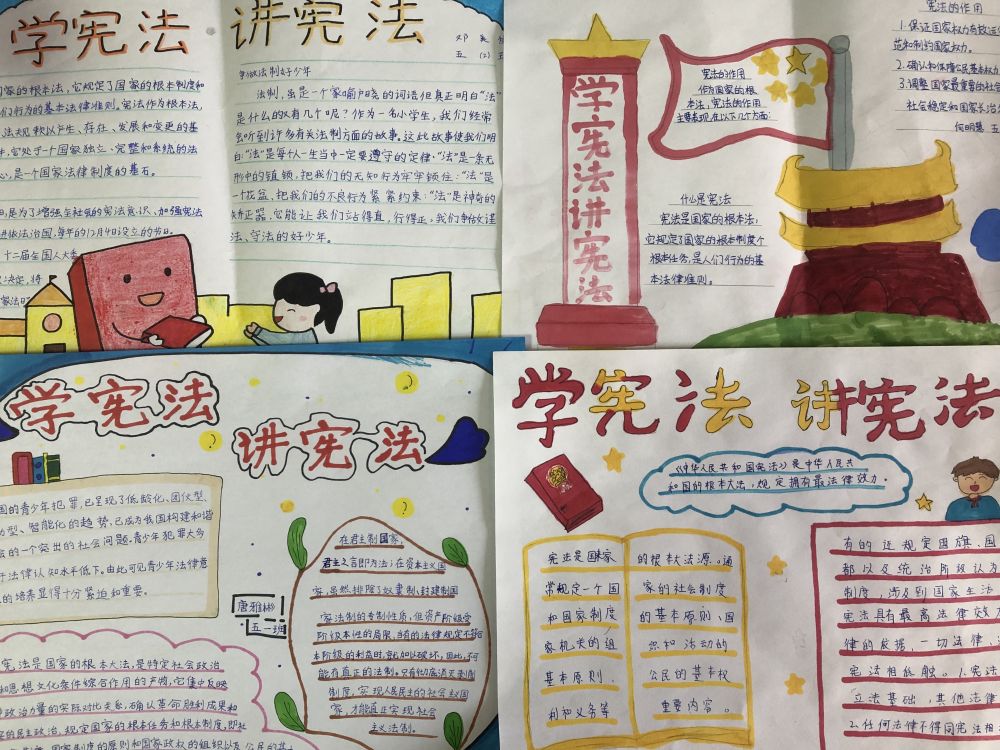 学宪法 讲宪法
五 (2)
家的根本法,它规定了国家的根本制度和
们行为的基本法律准则。宪法作为根本法,
法规赖以产生、存在、发展和变更的基
它处于一个国家独立、完整和系统的法
心,是一个国家法律制度的基石。
是为了增强全社会的宪法意识,加强宪法
进依法治国,每年的12月4日设立的节日。
十二届全国人大
决定,将
争做法制好少年
法制,虽是一个家喻户晓的词语但真正明白“法”
是什么的又有几个呢?作为一名小学生,我们经常
会听到许多有关法制方面的故事。这此故事使我们明
白:“法”是每个人一生当中一定要遵守的定律:“法”是一条无
形中的镇锁,把我们的无知行为牢牢锁住:“法”是
一花盆,把我们的不良行为紧紧约束:“法”是神奇的
矫正器,它能让我们站得直,行得正。我们争做文谨
法、守法的好少年。
学宪法讲宪法
宪法的作用
作为国家的根
本法,宪法的作用
主要表现在以下几个方面:
宪法的作用
1.保证国家权力有效运
范和制约国家权力。
2.确认和保障公民基本权力
3.调整国家最重要的社会
社会稳定和国家长治
何明慧 五
什么是宪法
宪法是国家的根本法,
它规定了国家的根本制度个
根本任务,是人们行为的基
本法律准则。
学宪法
讲宪法
国的青少年犯罪,已呈现了低龄化、团伙型、
型、智能化的趋势,已成为我国构建和谐
会的一个突出的社会问题。青少年犯罪大多
于法律认知水平低下。由此可见青少年法律意
的培养显得十分紧迫和重要。
唐雅彬
五一班
在君主制国家,
君主之言即为法;在资本主义国
家,虽然排除了奴隶制、封建制国
家法制的专制性质,但资产阶级受
阶级本性的局限,当有的法律规定不符合
本阶级的利益时,就加以破坏,因此,不可
能有真正的法制。只有彻底消灭剥削
制度,实现人民民主的社会主义国
家,才能真正实现社会
主义法制。
宪法是国家的根本大法,是特定社会政治
和思想文化条件综合作用的产物,它集中反映
政治力量的实际对比关系,确认革命胜利成果和
的民主政治,规定国家的根本任务和根本制度,即社
国家制度的原则和国家政权的组织以及公民的基
学宪法 讲宪法
《中华人民共和国宪法》是中华人民共
和国的根本大法,规定拥有最高法律效力。
宪法是国家
常规定一个国
和国家制度
家机关的组
基本原则,
利和义务等
的根本大法源。通
家的社会制度
的基本原则、国
织和活动的
公民的基本权
重要内容。
有的还规定国旗、国
都以及统治阶级认为
制度,涉及到国家生活
宪法具有最高法律效
律的依据,一切法律、
宪法相抵触。1.宪法
立法基础,其他法律
2.任何法律不得同宪法相